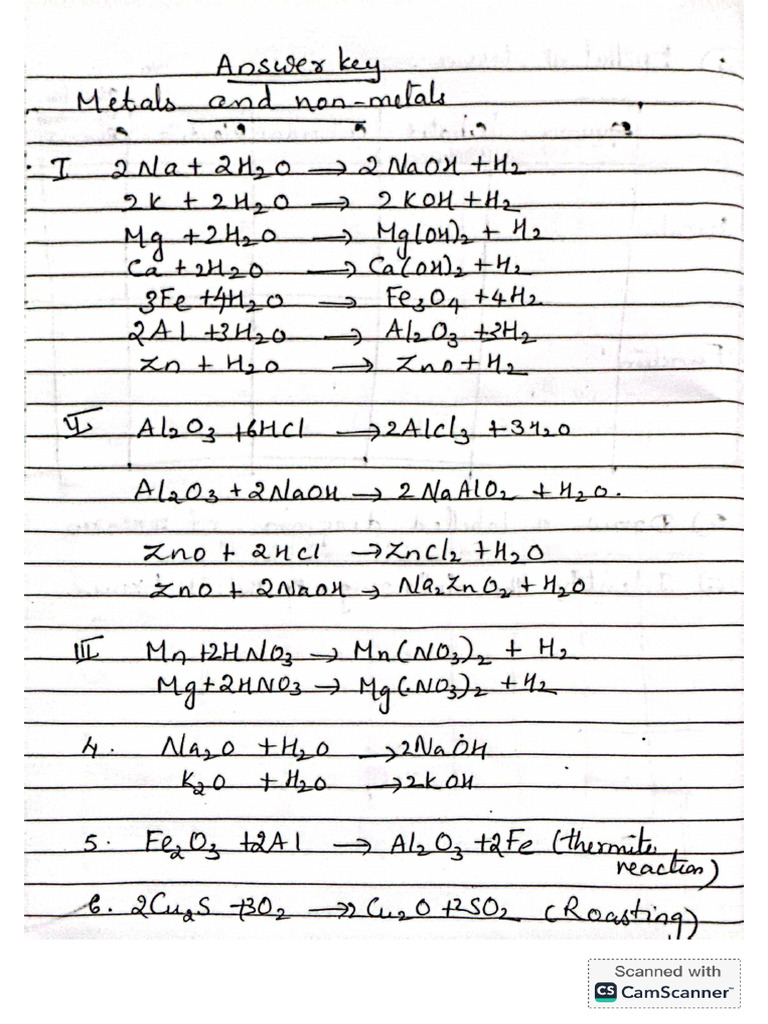 Answer key
Metals and non-metals
I 2Na + 2H₂O → 2NaOH + H₂
2K + 2H₂O → 2KOH + H₂
Mg + 2H₂O → Mg(OH)₂ + H₂
Ca + 2H₂O → Ca(OH)₂ + H₂
3Fe + 4H₂O → Fe₃O₄ + 4H₂
2Al + 3H₂O → Al₂O₃ + 3H₂
Zn + H₂O → ZnO + H₂
II Al₂O₃ + 6HCl → 2AlCl₃ + 3H₂O
Al₂O₃ + 2NaOH → 2NaAlO₂ + H₂O.
ZnO + 2HCl → ZnCl₂ + H₂O
ZnO + 2NaOH → Na₂ZnO₂ + H₂O
III Mn + 2HNO₃ → Mn(NO₃)₂ + H₂
Mg + 2HNO₃ → Mg(NO₃)₂ + H₂
4. Na₂O + H₂O → 2NaOH
K₂O + H₂O → 2KOH
5. Fe₂O₃ + 2Al → Al₂O₃ + 2Fe (thermite
reaction)
6. 2Cu₂S + 3O₂ → 2Cu₂O + 2SO₂ (Roasting)
Scanned with
CS CamScanner